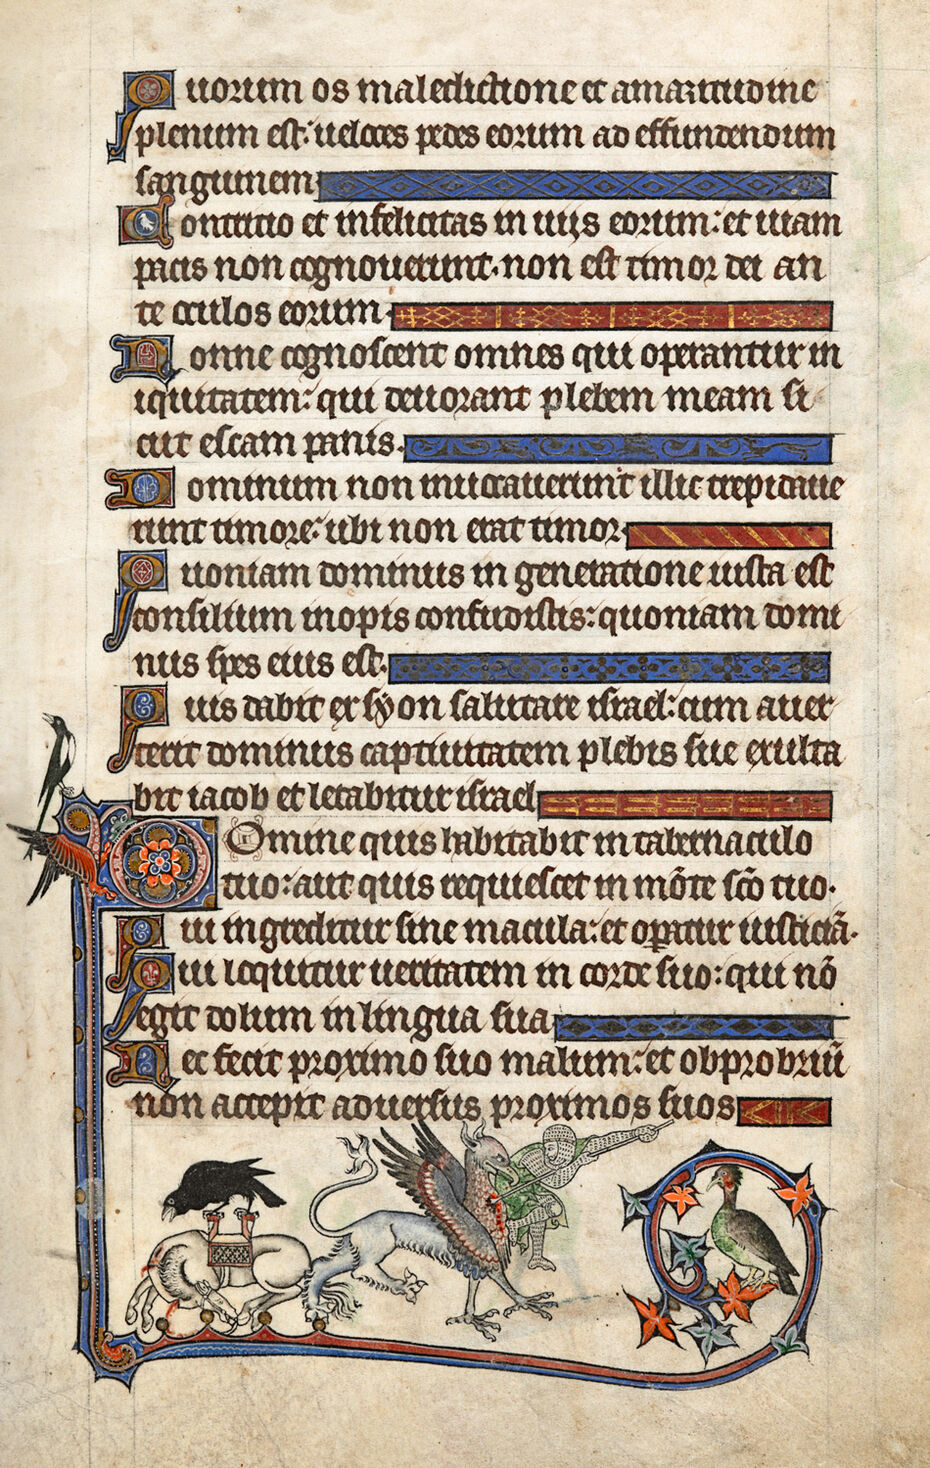 Quorum os maledictione et amaritudine
plenum est: ueloces pedes eorum ad effundendum
sanguinem
Contritio et infelicitas in uiis eorum: et uiam
pacis non cognouerunt. non est timor dei an
te oculos eorum.
Nonne cognoscent omnes qui operantur in
iquitatem: qui deuorant plebem meam si
cut escam panis.
Dominum non inuocauerunt illic trepidaue
runt timore: ubi non erat timor
Quoniam dominus in generatione iusta est
consilium inopis confudistis: quoniam domi
nus spes eius est.
Quis dabit ex syon salutare israel: cum auer
terit dominus captiuitatem plebis sue exulta
bit iacob et letabitur israel
Domine quis habitabit in tabernaculo
tuo: aut quis requiescet in mōte sc̄o tuo.
Qui ingreditur sine macula: et oꝑatur iusticiā.
Qui loquitur ueritatem in corde suo: qui nō
egit dolum in lingua sua
Nec fecit proximo suo malum: et obprobriū
non accepit aduersus proximos suos